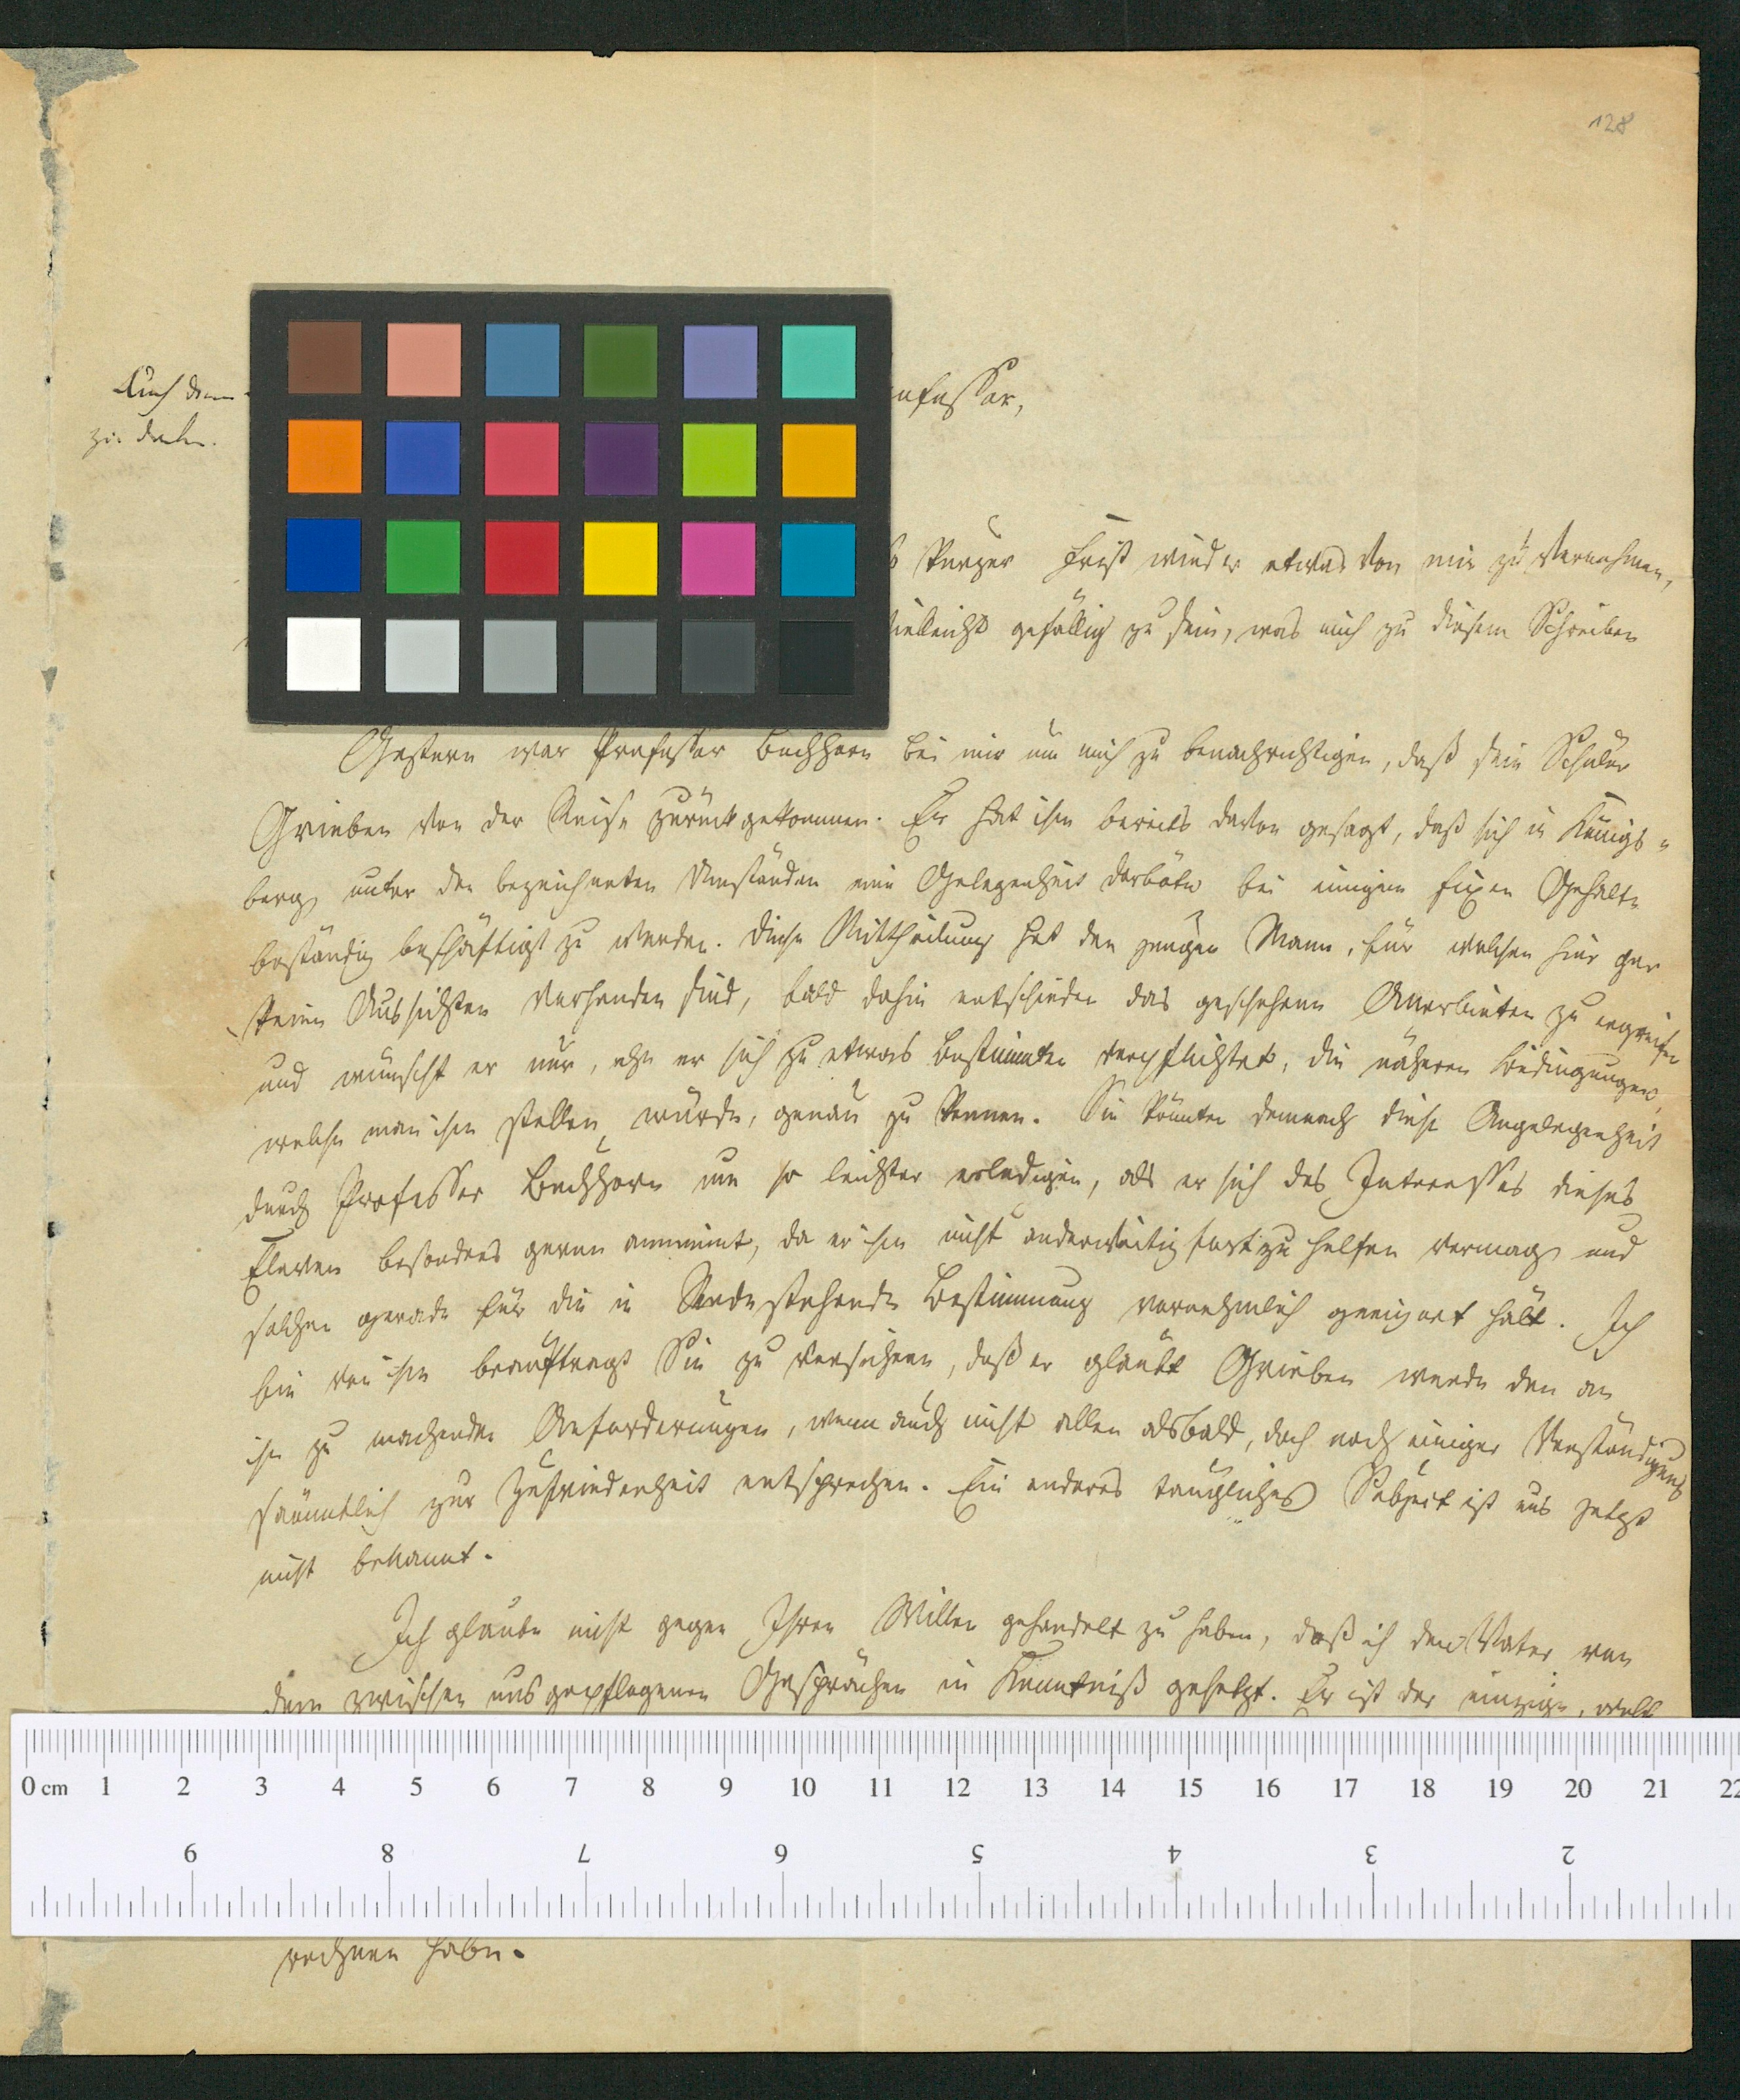 128
Auch dem
zu
ofessor,
kurzer Frist wieder etwas von mir zu vernehmen,
vielleicht gefällig zu sein, was mich zu diesem Schreiben
Gestern war Professor Buchhorn bei mir um mich zu benachrichtigen, daß sein Schüler
Grieben von der Reise zurückgekommen. Er hat ihm bereits davon gesagt, daß sich in Königs-
berg unter den bezeichneten Umständen eine Gelegenheit darböte bei einigem fixen Gehalte
beständig beschäftigt zu werden. Diese Mittheilung hat den jungen Mann, für welchen hier gar
keine Aussichten vorhanden sind, bald dahin entschieden das geschehene Anerbieten zu ergreifen
und wünscht er nur, ehe er sich zu etwas Bestimmten verpflichtet, die näheren Bedingungen,
welche man ihm stellen würde, genau zu kennen. Sie könnten demnach diese Angelegenheit
durch Professor Buchhorn um so leichter erledigen, als er sich des Interesses dieses
Eleven besonders gerne annimmt, da er ihm nicht anderweitig fortzuhelfen vermag und
solchen gerade für die in Rede stehende Bestimmung vornehmlich geeignet hält. Ich
bin von ihm beauftragt Sie zu versichern, daß er glaubt Grieben werde den an
ihn zu machenden Anforderungen, wenn auch nicht allen alsbald, doch nach einiger Verständigung
sämmtlich zur Zufriedenheit entsprechen. Ein anderes taugliches Subject ist uns jetzt
nicht bekannt.
Ich glaube nicht gegen Ihren Willen gehandelt zu haben, daß ich den Vater von
dem zwischen uns gepflogenen Gesprächen in Kenntniß gesetzt. Er ist der einzige,
0 cm 1 2 3 4 5 6 7 8 9 10 11 12 13 14 15 16 17 18 19 20 21 22
9 8 7 6 5 4 3 2
rechnen habe.